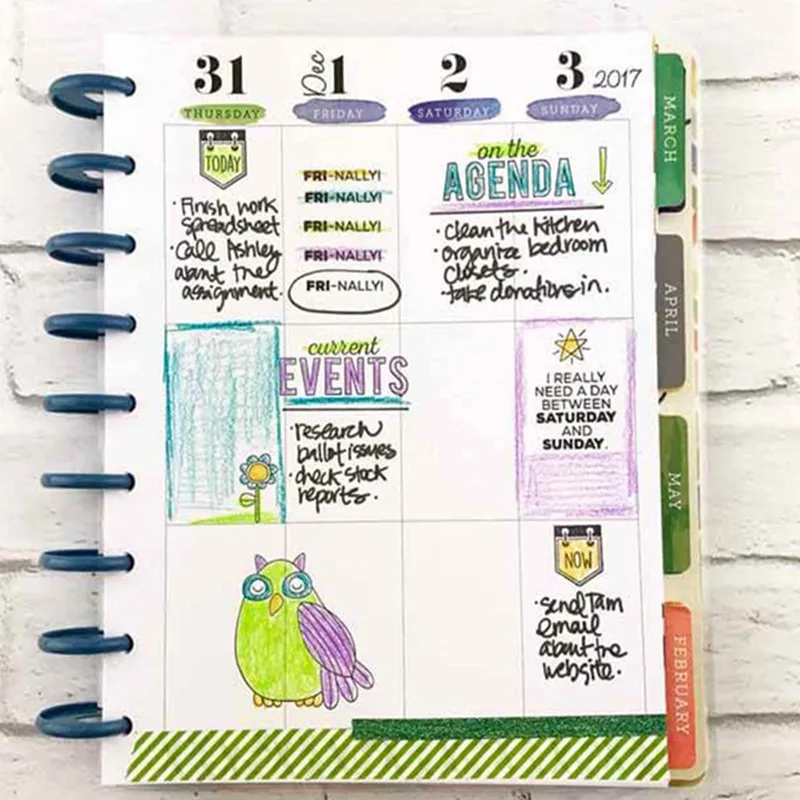 31
Dec 1
2
3 2017
THURSDAY
FRIDAY
SATURDAY
SUNDAY
TODAY
• Finish work
spreadsheet
• Call Ashley
about the
assignment.
FRI-NALLY!
FRI-NALLY!
FRI-NALLY!
FRI-NALLY!
FRI-NALLY!
on the
AGENDA
• clean the kitchen
• organize bedroom
closets.
• take donations in.
current
EVENTS
• research
ballot issues
• check stock
reports.
I REALLY
NEED A DAY
BETWEEN
SATURDAY
AND
SUNDAY.
NOW
• send Tam
email
about the
website.
MARCH
APRIL
MAY
FEBRUARY